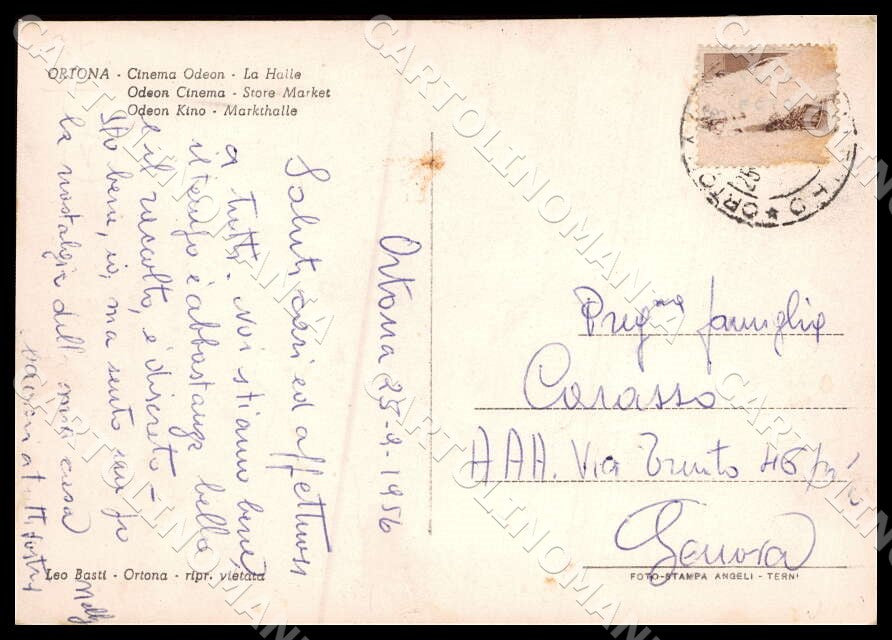 ORTONA - Cinema Odeon - La Halle
Odeon Cinema - Store Market
Odeon Kino - Markthalle
Ortona 25-9-1956
Saluti cari ed affettuosi
a tutti. Noi stiamo bene,
il tempo è abbastanza bello
e il raccolto, è discreto -
Sto bene, io, ma sento un po'
la nostalgia dell mia casa
bacioni a tutti,
Nelly
Preg.me famiglia
Carasso
Via Trento 46/
Genova
Leo Basti - Ortona - ripr. vietata
FOTO-STAMPA ANGELI - TERNI
ORTO
25
CARTOLINOMANIA